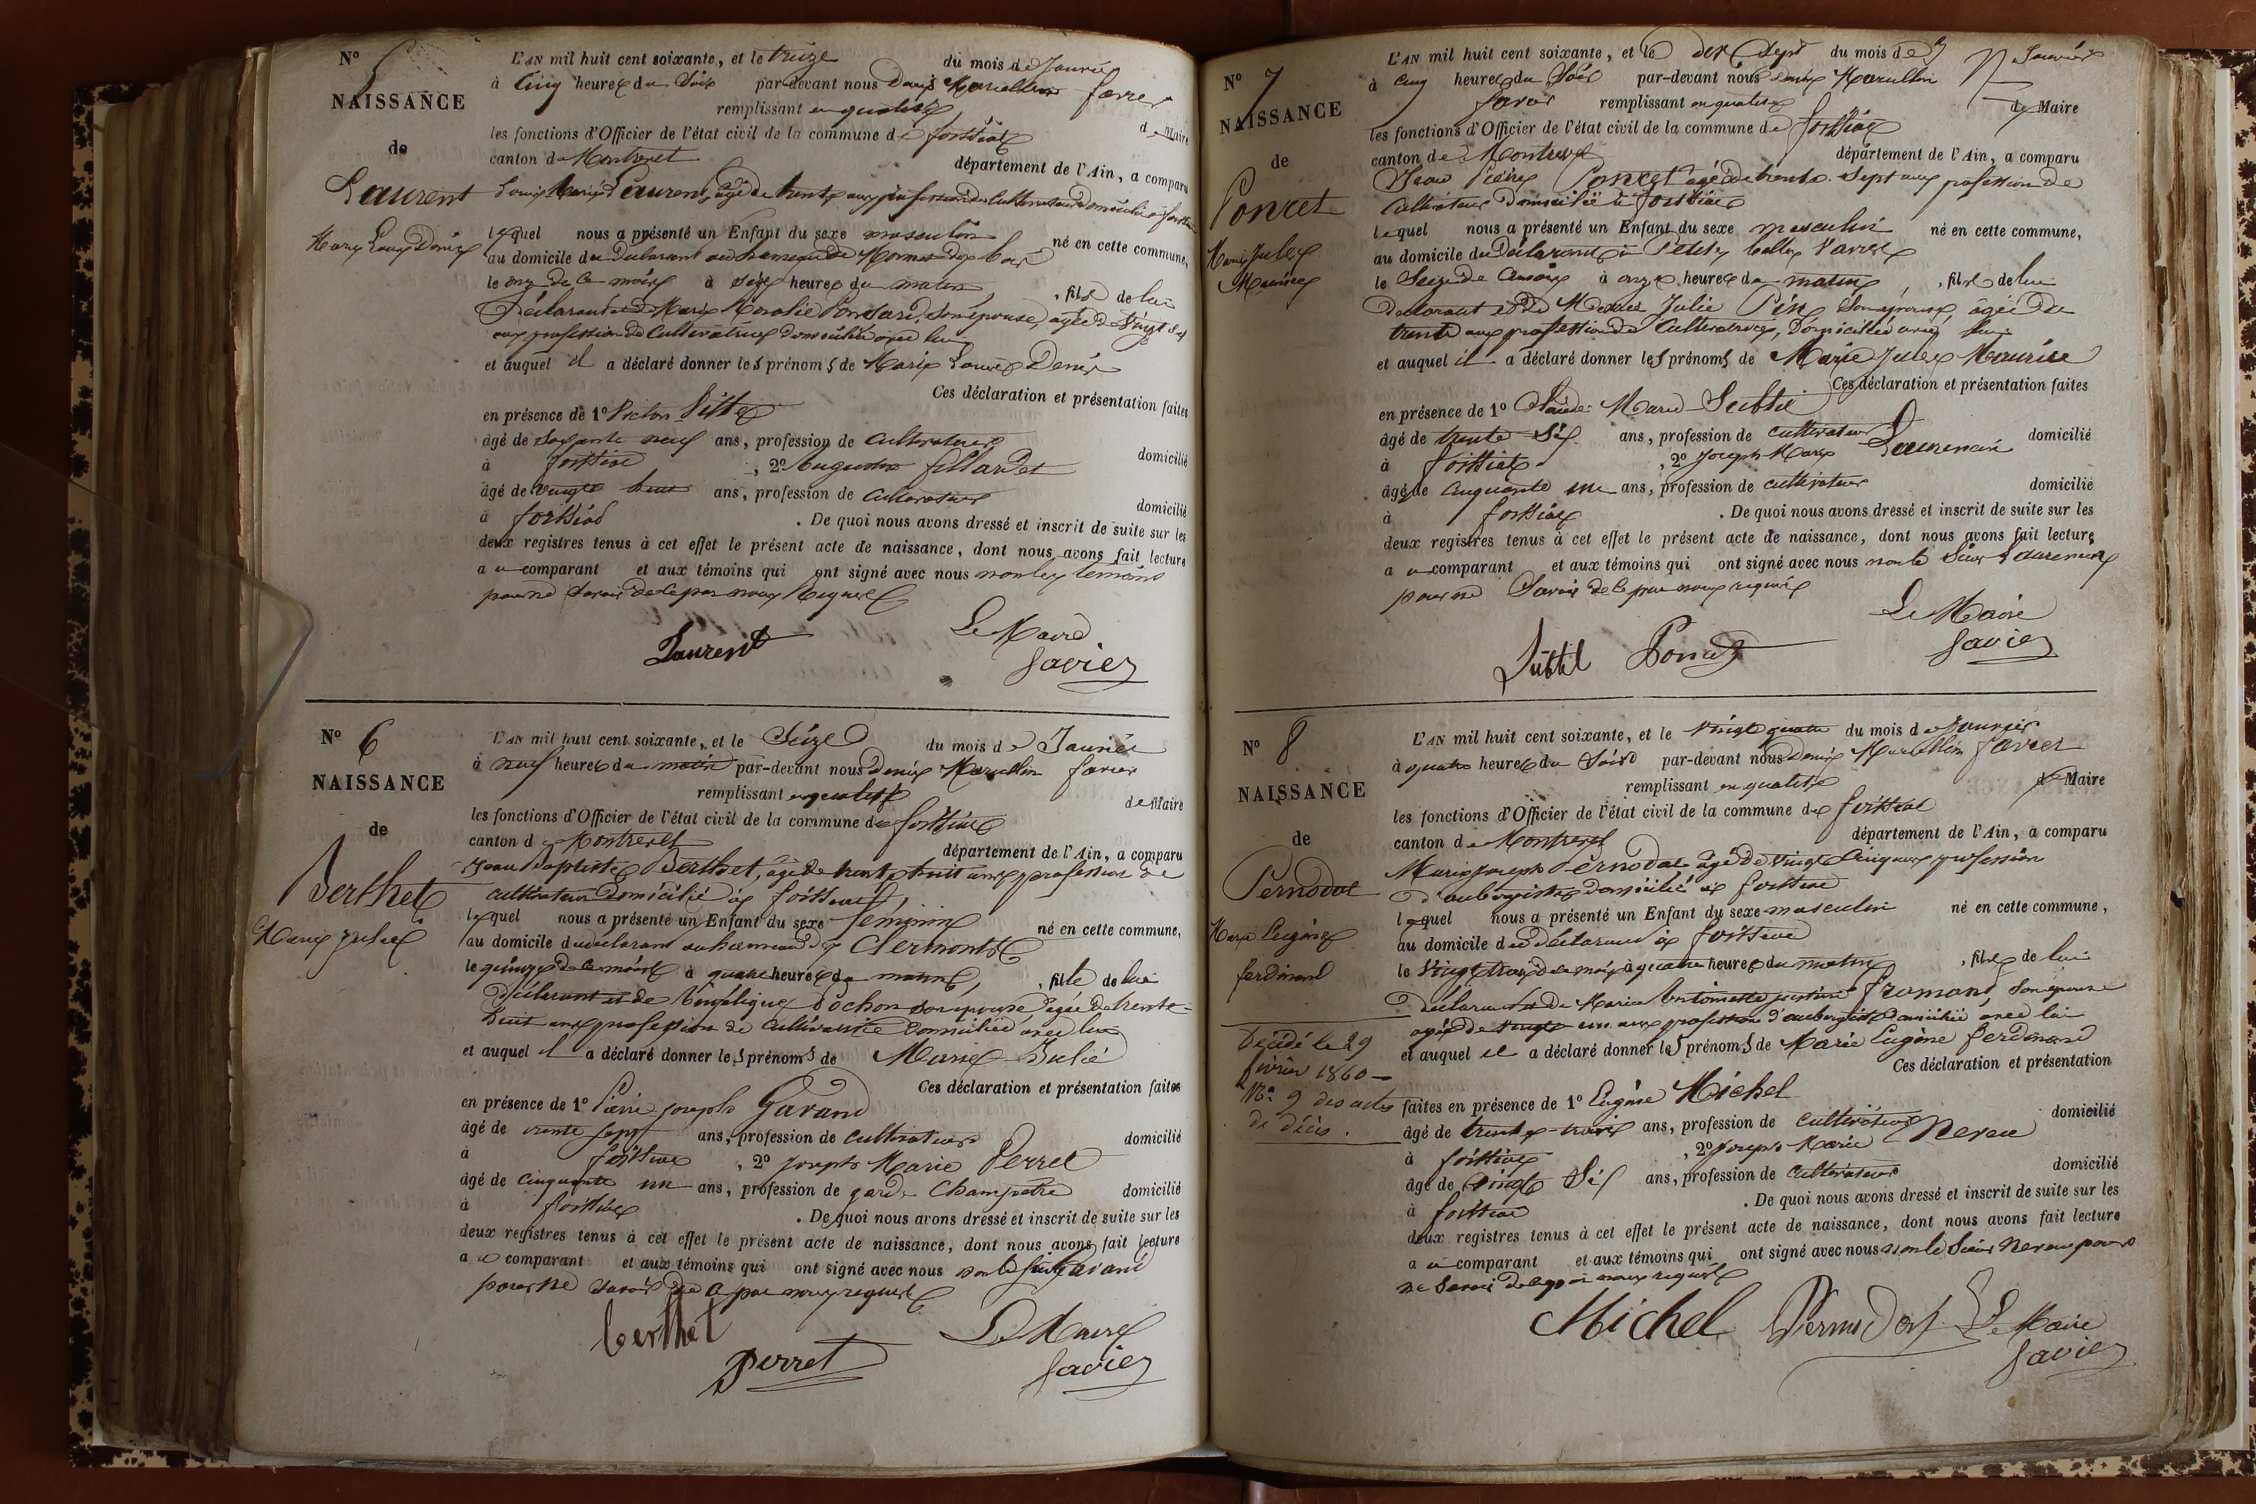 N° 5
NAISSANCE
de
Laurent
Marie Louis Denis
L'AN mil huit cent soixante, et le treize du mois de Janvier
à Cinq heures du Soir par-devant nous Denis Marcellin favier
remplissant en qualité de Maire
les fonctions d'Officier de l'état civil de la commune de foissiat
canton de Montrevel département de l'Ain, a comparu
Louis Marie Laurent, âgé de trente ans profession de Cultivateur domicilié à foissiat
lequel nous a présenté un Enfant du sexe masculin né en cette commune,
au domicile du Déclarant au hameau de
le onze de ce mois à heures du matin, fils de lui
Déclarant et de Marie son épouse, âgée de vingt
ans profession de Cultivatrice domiciliée avec lui
et auquel il a déclaré donner les prénoms de Marie Louis Denis
Ces déclaration et présentation faites
en présence de 1° Victor
âgé de soixante neuf ans, profession de Cultivateur domicilié
à foissiat, 2° Augustin
âgé de vingt huit ans, profession de Cultivateur domicilié
à foissiat. De quoi nous avons dressé et inscrit de suite sur les
deux registres tenus à cet effet le présent acte de naissance, dont nous avons fait lecture
au comparant et aux témoins qui ont signé avec nous non les témoins
pour ne savoir de ce par nous requis
Laurent
Le Maire
favier
N° 6
NAISSANCE
de
Berthet
Marie Julie
L'AN mil huit cent soixante, et le Seize du mois de Janvier
à neuf heures du matin par-devant nous Denis Marcellin favier
remplissant en qualité de Maire
les fonctions d'Officier de l'état civil de la commune de foissiat
canton de Montrevel département de l'Ain, a comparu
Jean Baptiste Berthet, âgé de trente huit ans profession de
cultivateur domicilié à foissiat,
lequel nous a présenté un Enfant du sexe féminin né en cette commune,
au domicile du déclarant au hameau des Clermonts
le quinze de ce mois à quatre heures du matin, fille de lui
Déclarant et de Angélique Bochon son épouse âgée de trente
huit ans profession de Cultivatrice domiciliée avec lui
et auquel il a déclaré donner les prénoms de Marie Julie
Ces déclaration et présentation faites
en présence de 1° Pierre joseph Gavand
âgé de trente sept ans, profession de cultivateur domicilié
à foissiat, 2° Joseph Marie Perret
âgé de cinquante un ans, profession de garde Champetre domicilié
à foissiat. De quoi nous avons dressé et inscrit de suite sur les
deux registres tenus à cet effet le présent acte de naissance, dont nous avons fait lecture
au comparant et aux témoins qui ont signé avec nous non le sieur Gavand
pour ne savoir de ce par nous requis
berthet
perret
Le Maire
favier
N° 7
NAISSANCE
de
Poncet
Marie Jules
Maurice
L'AN mil huit cent soixante, et le dix Sept du mois de Janvier
à cinq heures du Soir par-devant nous Denis Marcellin
favier remplissant en qualité de Maire
les fonctions d'Officier de l'état civil de la commune de foissiat
canton de Montrevel département de l'Ain, a comparu
Jean Pierre Poncet âgé de trente Sept ans profession de
Cultivateur domicilié à foissiat
lequel nous a présenté un Enfant du sexe masculin né en cette commune,
au domicile du Déclarant
le Seize de ce mois à onze heures du matin, fils de lui
Déclarant et de Marie Julie Pin son épouse âgée de
trente ans profession de Cultivatrice, domiciliée avec lui
et auquel il a déclaré donner les prénoms de Marie Jules Maurice
Ces déclaration et présentation faites
en présence de 1° Claude Marie Subtil
âgé de trente Six ans, profession de cultivateur domicilié
à foissiat, 2° Joseph Marie Laurencin
âgé de cinquante un ans, profession de cultivateur domicilié
à foissiat. De quoi nous avons dressé et inscrit de suite sur les
deux registres tenus à cet effet le présent acte de naissance, dont nous avons fait lecture
au comparant et aux témoins qui ont signé avec nous non le Sieur Laurencin
pour ne Savoir de ce par nous requis
Subtil Poncet
Le Maire
favier
N° 8
NAISSANCE
de
Pernodat
Marie Eugène
ferdinand
Décédé le 29
février 1860 -
N° 9 des actes
de décès.
L'AN mil huit cent soixante, et le Vingt quatre du mois de Janvier
à quatre heures du Soir par-devant nous Denis Marcellin favier
remplissant en qualité de Maire
les fonctions d'Officier de l'état civil de la commune de foissiat
canton de Montrevel département de l'Ain, a comparu
Marie joseph Pernodat âgé de vingt Cinq ans profession
d'aubergiste domicilié à foissiat
lequel nous a présenté un Enfant du sexe masculin né en cette commune,
au domicile du déclarant à foissiat
le Vingt trois de ce mois à quatre heures du matin, fils de lui
Déclarant et de Marie Antoinette justine fromont, Son épouse
agée de vingt un ans profession d'aubergiste domiciliée avec lui
et auquel il a déclaré donner les prénoms de Marie Eugène ferdinand
Ces déclaration et présentation
faites en présence de 1° Eugène Michel
âgé de trente trois ans, profession de cultivateur domicilié
à foissiat, 2° Joseph Marie
âgé de vingt Six ans, profession de Cultivateur domicilié
à foissiat. De quoi nous avons dressé et inscrit de suite sur les
deux registres tenus à cet effet le présent acte de naissance, dont nous avons fait lecture
au comparant et aux témoins qui ont signé avec nous non le Sieur pour
ne Savoir de ce par nous requis
Michel Pernodat Le Maire
favier